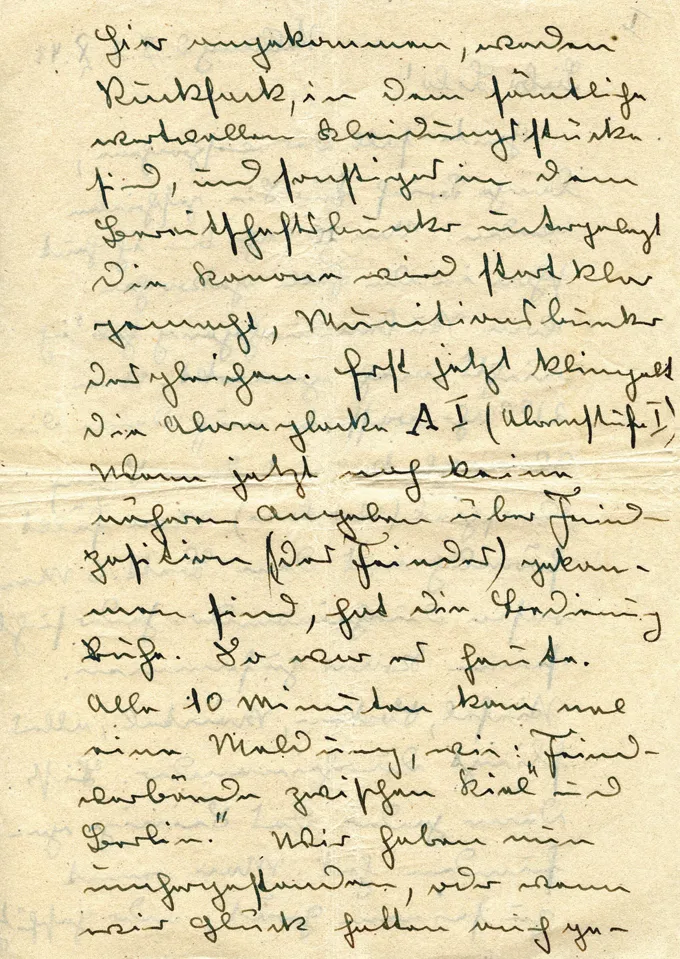 Hier angekommen, werden
Rucksack, in dem sämtliche
wertvollen Kleidungsstücke
sind, und sonstiges in dem
Bereitschaftsbunker untergelegt
die Kanone wird startklar
gemacht, Munitionsbunker
desgleichen. Erst jetzt klingelt
die Alarmglocke A I (Alarmstufe I)
Wenn jetzt noch keine
näheren Angaben über Feind-
position (des Feindes) gekom-
men sind, hat die Bedienung
Ruhe. So war es heute.
Alle 10 Minuten kam mal
eine Meldung, wie: „Feind-
verbände zwischen Kiel und
Berlin." Wir haben nun
umhergestanden, oder wenn
wir Glück hatten auch ge-